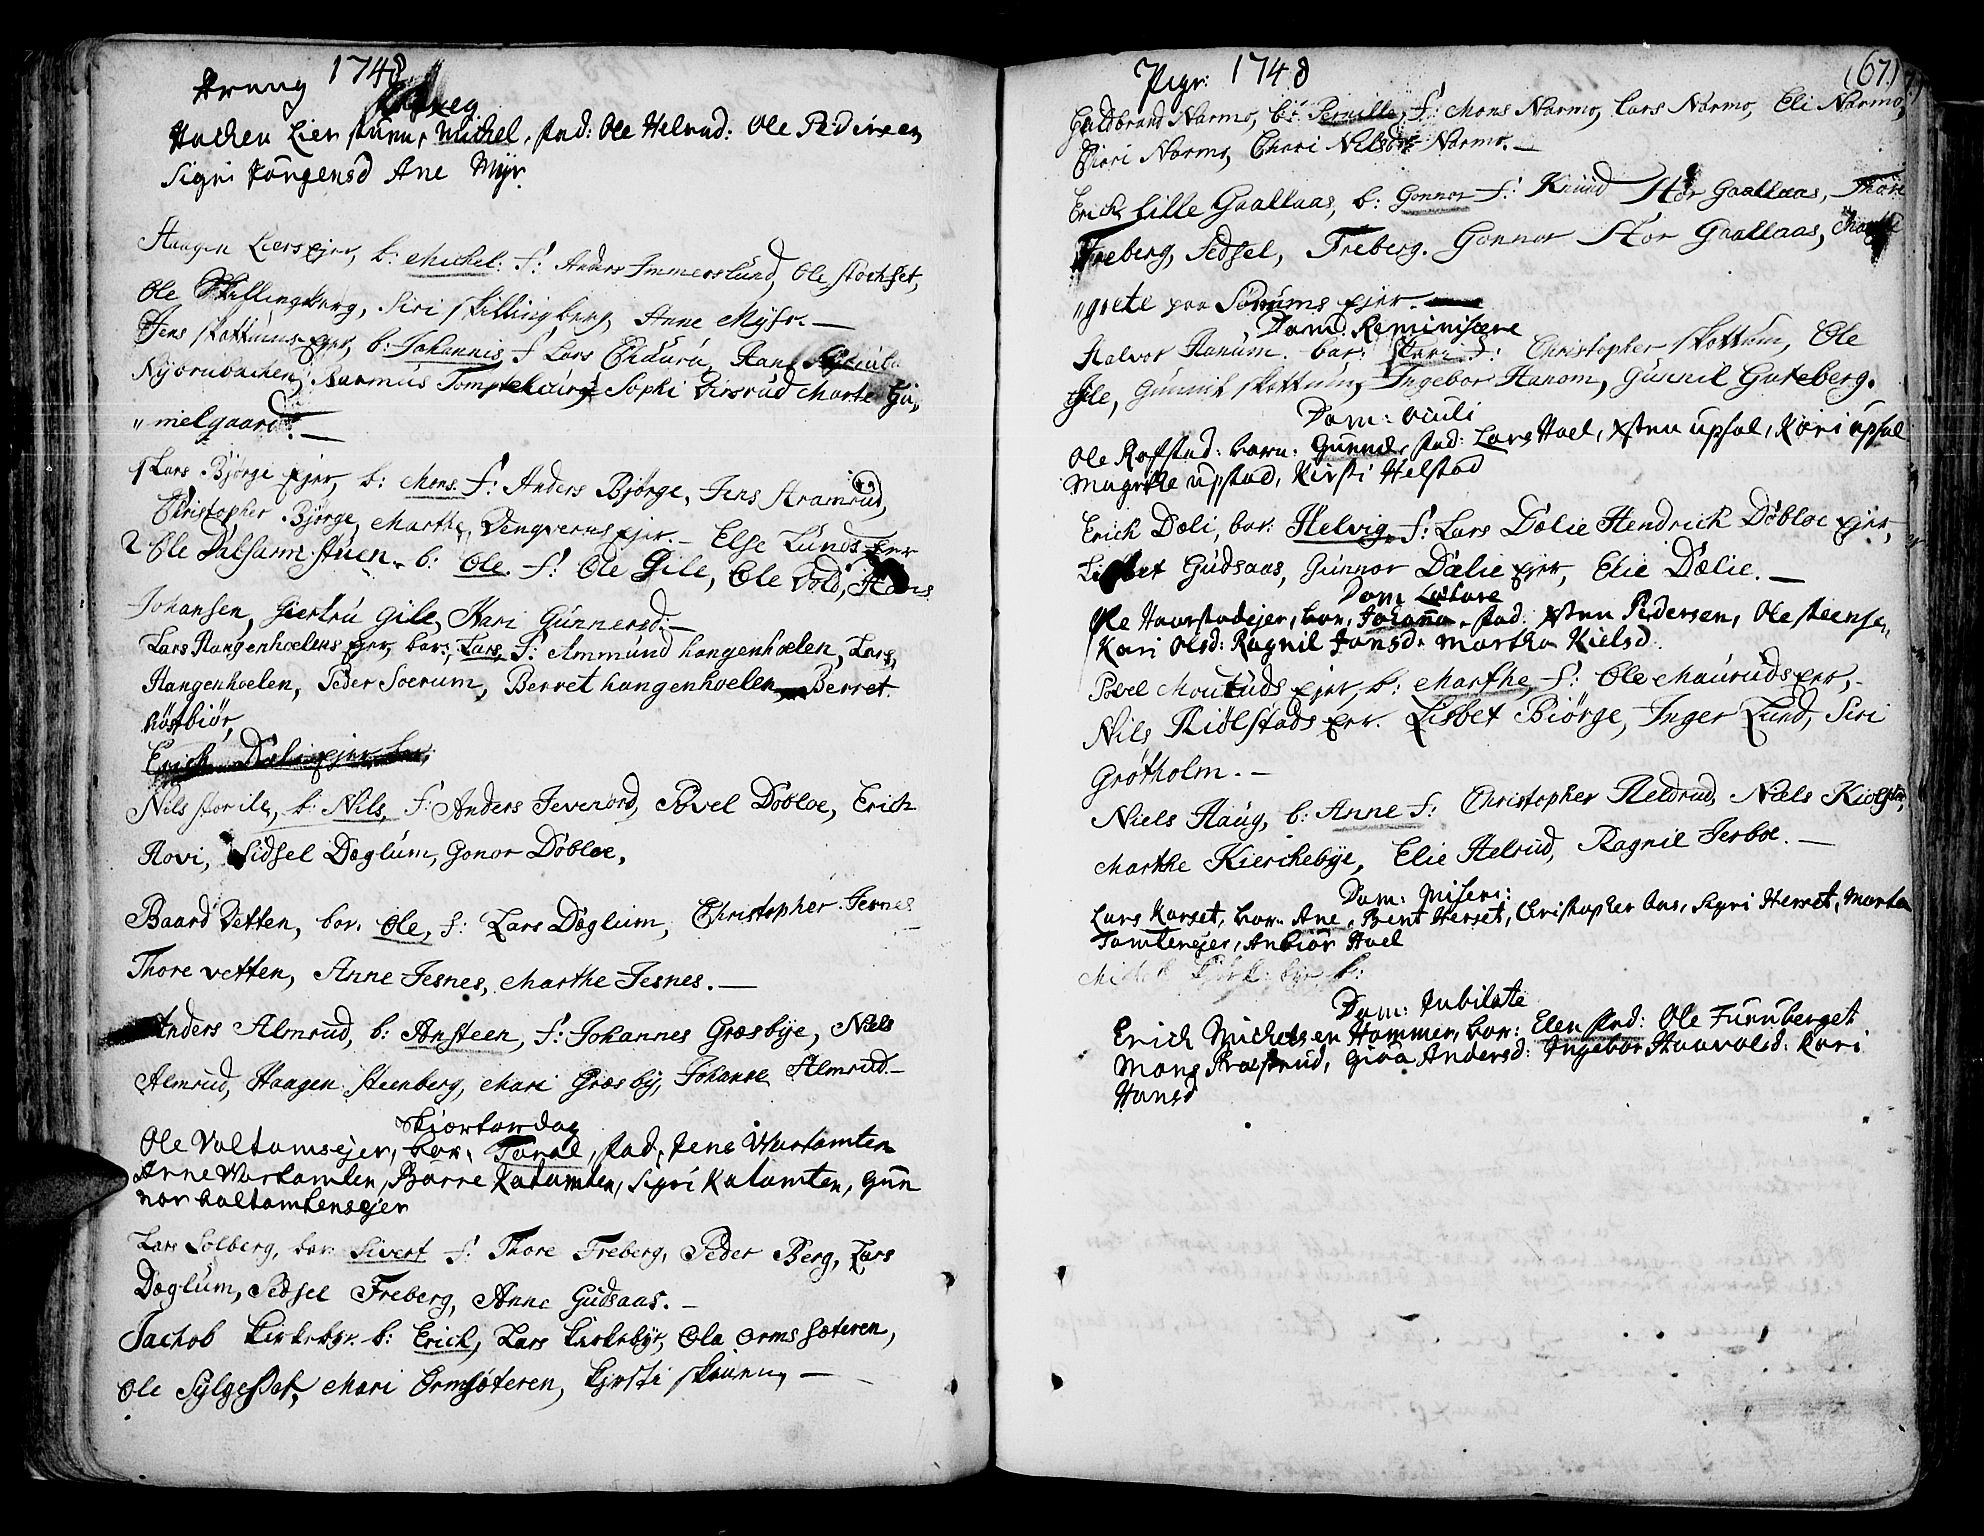 Areng 1748
Hachen Lier stuen, Michel, stad: Ole Helrud: Ole Pedersen,
Sigri Jörgensd Ane Myr
Haagen Liersejer, b: Michel: f: Anders Immerslund, Ole Stochset,
Ole Skillingsberg, Siri Skillingsberg, Anne Myhr. —
Jens Skottums ejer, b: Johannis f Lars Hans
Nyörnbachen, Rasmus Sophi Virsrud Marte Gu„
„melgaard. —
1 Lars Björge ejer, b: Mons f: Anders Björge, Jens Aramrud,
Christopher Björge, Marthe Vengverns ejer. — Else Lunds ejer
2 Ole Dalsarm stuen. b: Ole. f: Ole Gile, Ole Vold, Hans
Johansen, Giertru Gile, Kari Gunnersd. —
Lars Hangenhoelens ejer, bar: Lars, f: Ammund hangenhoelen, Lars
Hangenhoelen, Peder Soerum, Berret hangenhoelen, Berret
Röstbiör,
Erich Dæli ejer bar:
Nils storile, b: Nils, f: Anders Jevenord, Povel Dobloe, Erich
Hovi, Sidsel Döglum, Gonor Dobloe,
Baard Vetten, bar. Ole, f: Lars Döglum, Christopher Jernes
Thore vetten, Anne Jesnes, Marthe Jesnes. —
Anders Almrud, b: Ansteen, f: Johannes Græsbye, Niels
Almrud, Haagen Steenberg, Mari Græsby, Johanne Almrud —
Skiærtorsdag
Ole Valtomsejer, bar, Toral, stad, Jens Wartomten
Arne Wartomten, Börre Katomten, Sigri Katomten, Gun
nor Valtomtensejer
Lars Solberg, bar: Sivert f: Thore Freberg, Peder Berg, Lars
Döglum, Sidsel Freberg, Anne Gudsaas. —
Jachob Kirkebye. b: Erich, Lars Kirkebye, Ola Ormsæteren,
Ole Sylgeset, Mari Ormsöteren, Kirsti —
Pigr: 1748
(67)
Guldbrand Narmo, b: Pernille, f: Mons Narmo, Lars Narmo, Eli Narmo,
Kari Narmo, Mari Nilsdr Narmo. —
Erich Lille Gaallaas, b: Gonnor f: Knuud Stor Gaallaas, Thore
Freberg, Sedsel, Freberg. Gonnor Stor Gaallaas, Mar
„grete paa Sörums ejer.
Dom: Reminiscere
Halvor Hanum. bar: Kari f: Christopher Skottum, Ole
Gile, Gunnil Skottum, Ingebor Hanom, Gunnil Guteberg.
Dom: Oculi
Ole Rofstad: barn: Gunnil, stad: Lars Hoel, Xsten Upsal, Kari Upsal
Magrete Upstad, Kirsti Helstad
Erich Dæli, bar: Helvig, f: Lars Dælie Hendrich Dobloe ejer,
Lisbet Gudsaas, Gunnor Dælie ejer, Elie Dælie. —
Dom Lætare
Ole Haarstadejer, bar, Johanna. stad: Xsten Pedersen, Ole Steense„
Kari Olsd: Ragnil Jonsd. Martha Kielsd.
Povel Mouruds ejer, b: Marthe, f: Ole Mauruds ejer, —
Nils Kiölstads ejer. Lisbet Biörge, Inger Lund, Siri
Grötholm. —
Niels Haug, b: Anne f: Christopher Heldrud, Niels Kiolstad,
Marthe Kierchebye, Elie Helrud, Ragnil Jerboe. —
Dom: Miseri:
Lars Korset, bar. Ane, Bent Herset, Christopher Aas, Sigri Herset, Marta
Tomtensejer, Anbiör Hoel
Michel b:
Dom: Jubilate
Erich Michelsen Hammer, bar: Elen stad: Ole Furuberget
Mons Gina Andersd: Ingebor Haavalsd: Kari
Hansd